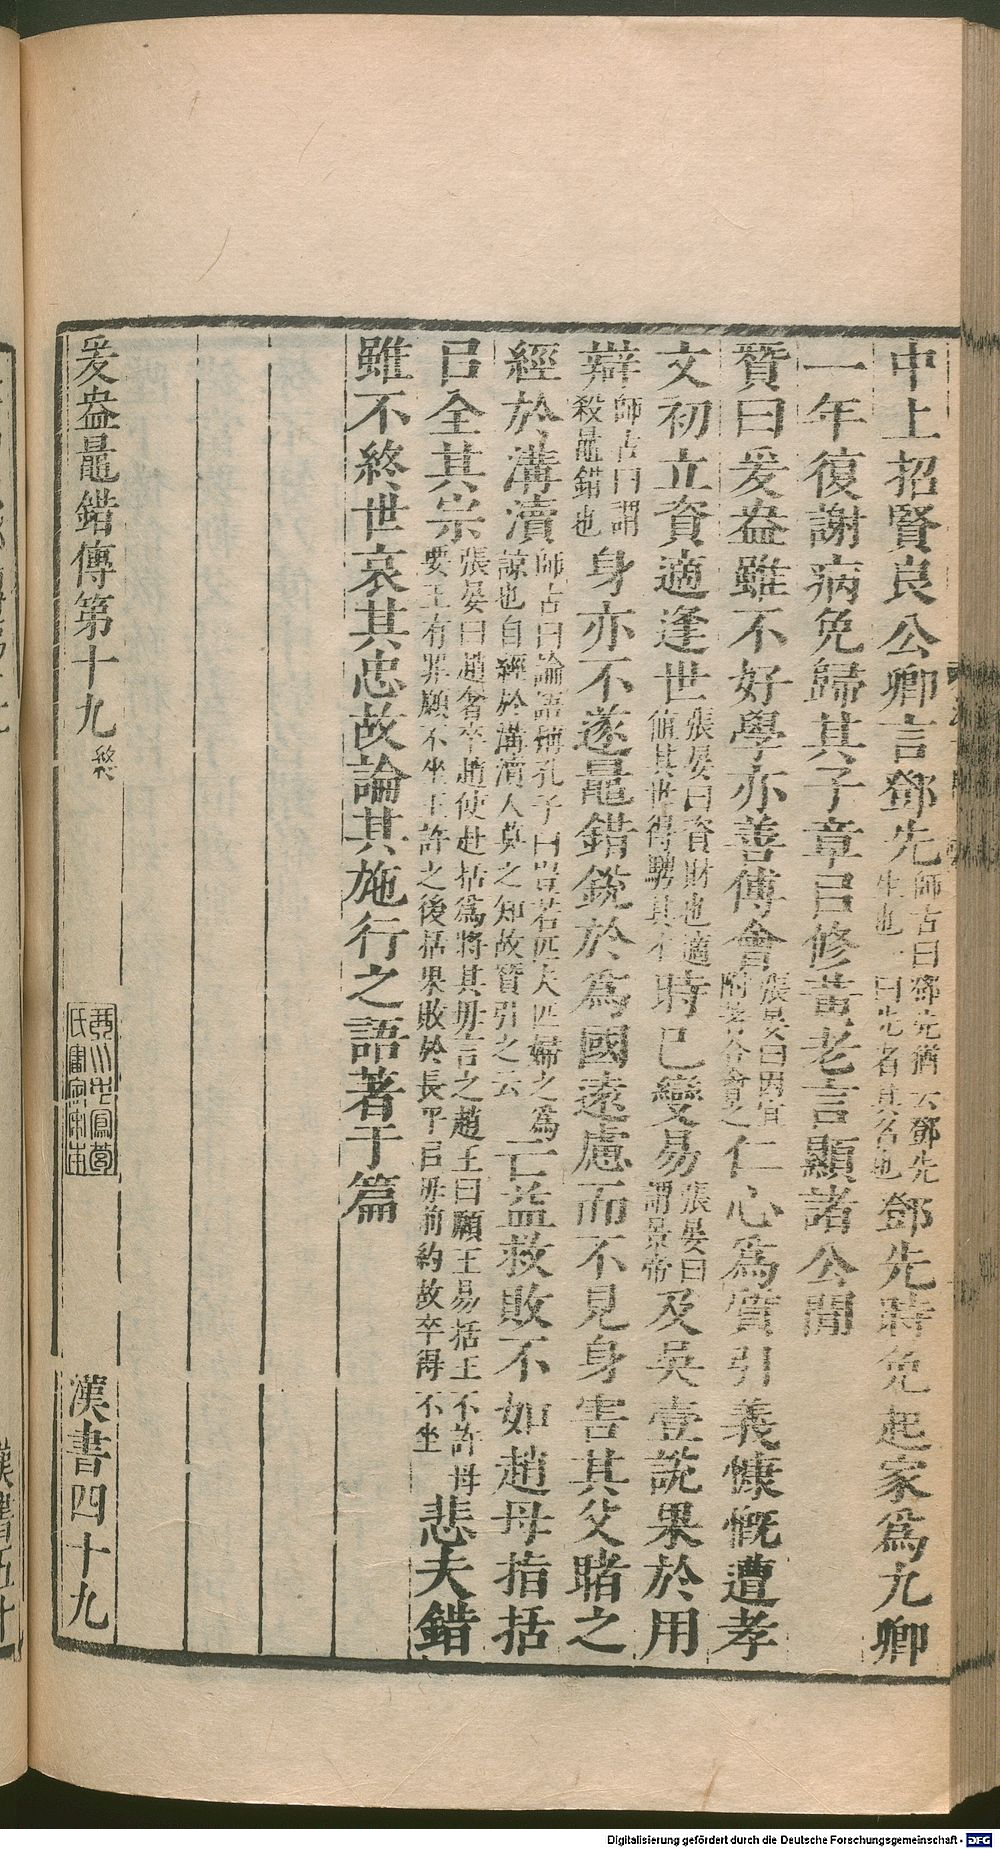 中上招賢良公卿言鄧先師古曰鄧先猶云鄧先生也一曰先者其名也鄧先時免起家爲九卿
一年復謝病免歸其子章㠯修黃老言顯諸公閒
贊曰爰盎雖不好學亦善傅會張晏曰因宜附著合會之仁心爲質引義慷慨遭孝
文初立資適逢世張晏曰資財也適值其世得騁其才時已變易張晏曰謂景帝及吳壹說果於用
辯師古曰謂殺鼂錯也身亦不遂鼂錯銳於爲國遠慮而不見身害其父睹之
經於溝瀆師古曰論語稱孔子曰豈若匹夫匹婦之爲諒也自經於溝瀆人莫之知故贊引之云亡益救敗不如趙母指括
㠯全其宗張晏曰趙奢卒趙使趙括爲將其母言之趙王曰願王易括王不許母要王有罪願不坐王許之後括果敗於長平㠯母前約故卒得不坐悲夫錯
雖不終世哀其忠故論其施行之語著于篇
爰盎鼂錯傳第十九終
漢書四十九
漢書五十
Digitalisierung gefördert durch die Deutsche Forschungsgemeinschaft - DFG